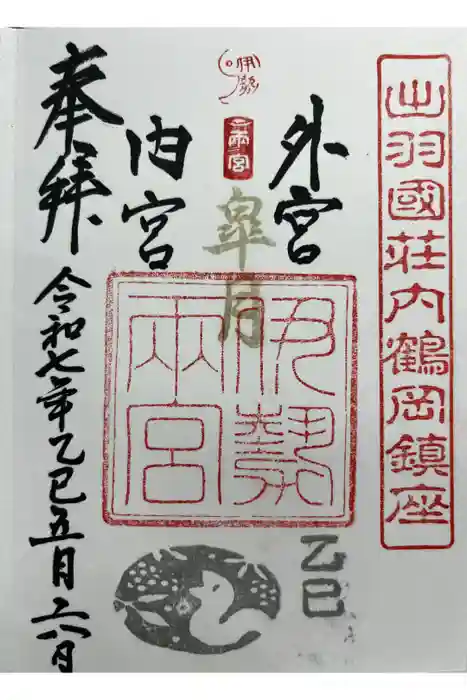 出羽國莊内鶴岡鎮座
外宮
伊勢
両宮
皐月
内宮
伊勢
兩宮
乙巳
奉拝
令和七年乙巳五月二八日